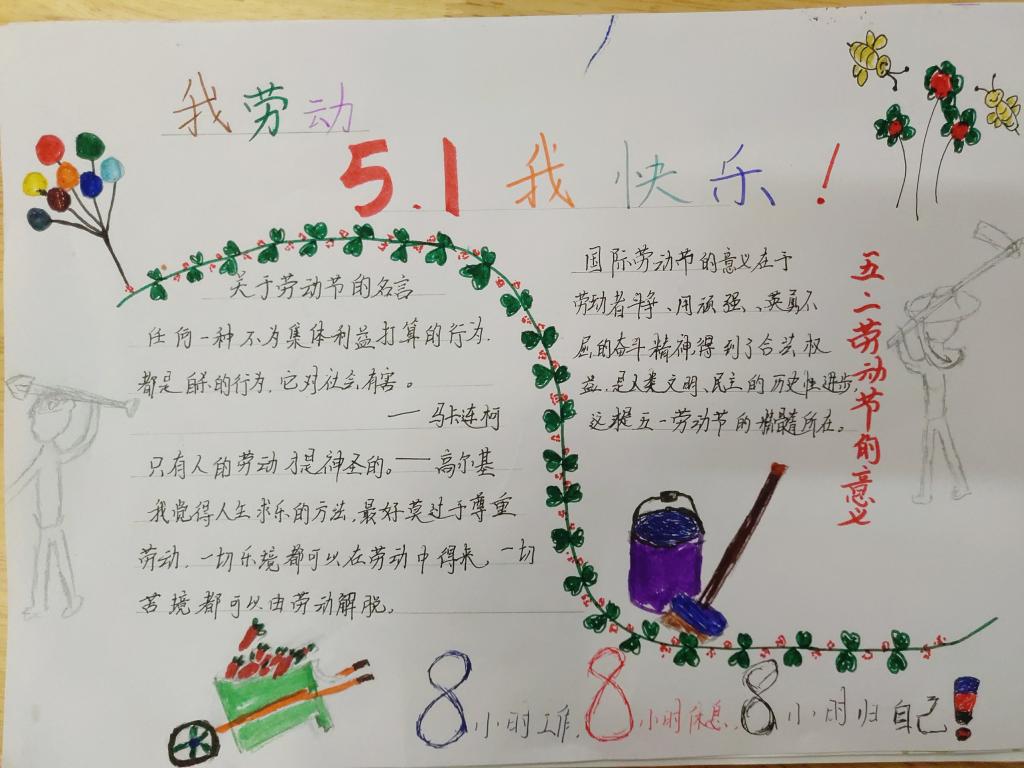 我劳动
5.1我快乐！
关于劳动节的名言
任何一种不为集体利益打算的行为.
都是自杀的行为,它对社会有害。
——马卡连柯
只有人的劳动才是神圣的。——高尔基
我觉得人生求乐的方法,最好莫过于尊重
劳动.一切乐境都可以在劳动中得来,一切
苦境都可以由劳动解脱。
国际劳动节的意义在于
劳动者斗争、用顽强、、英勇不
屈的奋斗精神,得到了合法权
益,是人类文明、民主的历史性进步,
这才是五一劳动节的精髓所在。
五一劳动节的意义
8小时工作,8小时休息,8小时归自己!